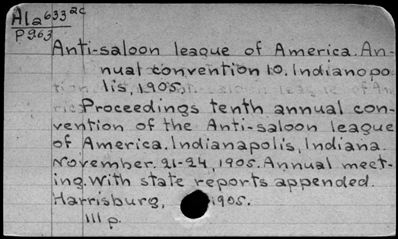 Ala633 2c
P963
Anti-saloon league of America. An-
nual convention 10. Indianopo
lis, 1905.
Proceedings tenth annual con-
vention of the Anti-saloon league
of America. Indianapolis, Indiana.
November. 21-24, 1905. Annual meet-
ing. With state reports appended.
Harrisburg, 1905.
111 p.